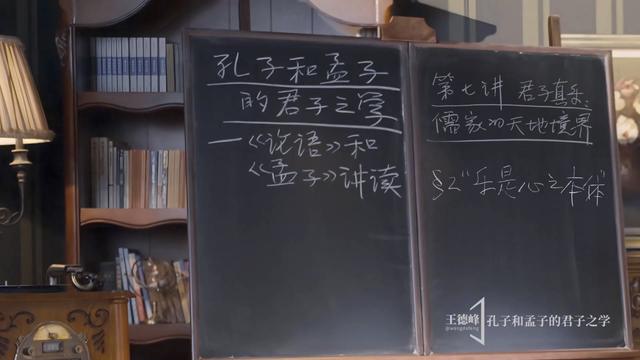 孔子和孟子
的君子之学
—《论语》和
《孟子》讲读
第七讲 君子真乐:
儒家的天地境界
§2“乐是心之本体”
王德峰
@wangdefeng
孔子和孟子的君子之学